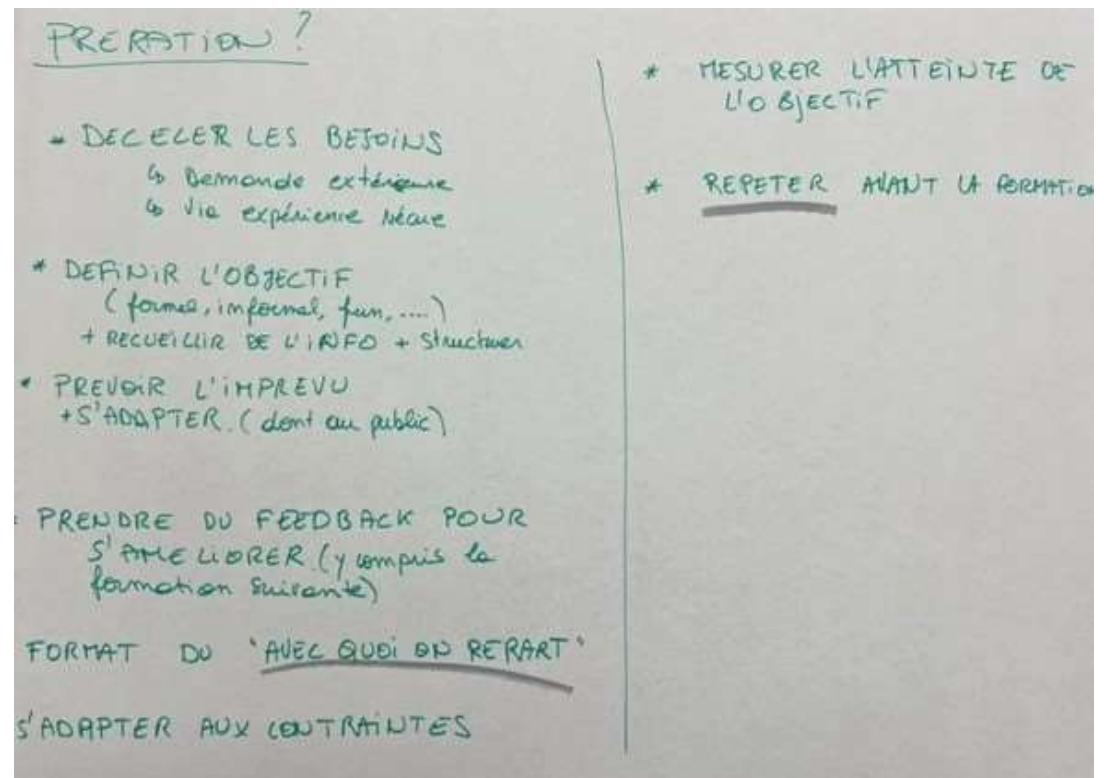 PRERATION ?
* DECELER LES BESOINS
↳ Demande extérieure
↳ Via expérience vécue
* DEFINIR L'OBJECTIF
(formel, informel, fun, ....)
+ RECUEILLIR DE L'INFO + Structurer
* PREVOIR L'IMPREVU
+ S'ADAPTER (dont au public)
PRENDRE DU FEEDBACK POUR
S'AMELIORER (y compris la
formation suivante)
FORMAT DU "AVEC QUOI ON REPART"
S'ADAPTER AUX CONTRAINTES
* MESURER L'ATTEINTE DE
L'OBJECTIF
* REPETER AVANT LA FORMATION